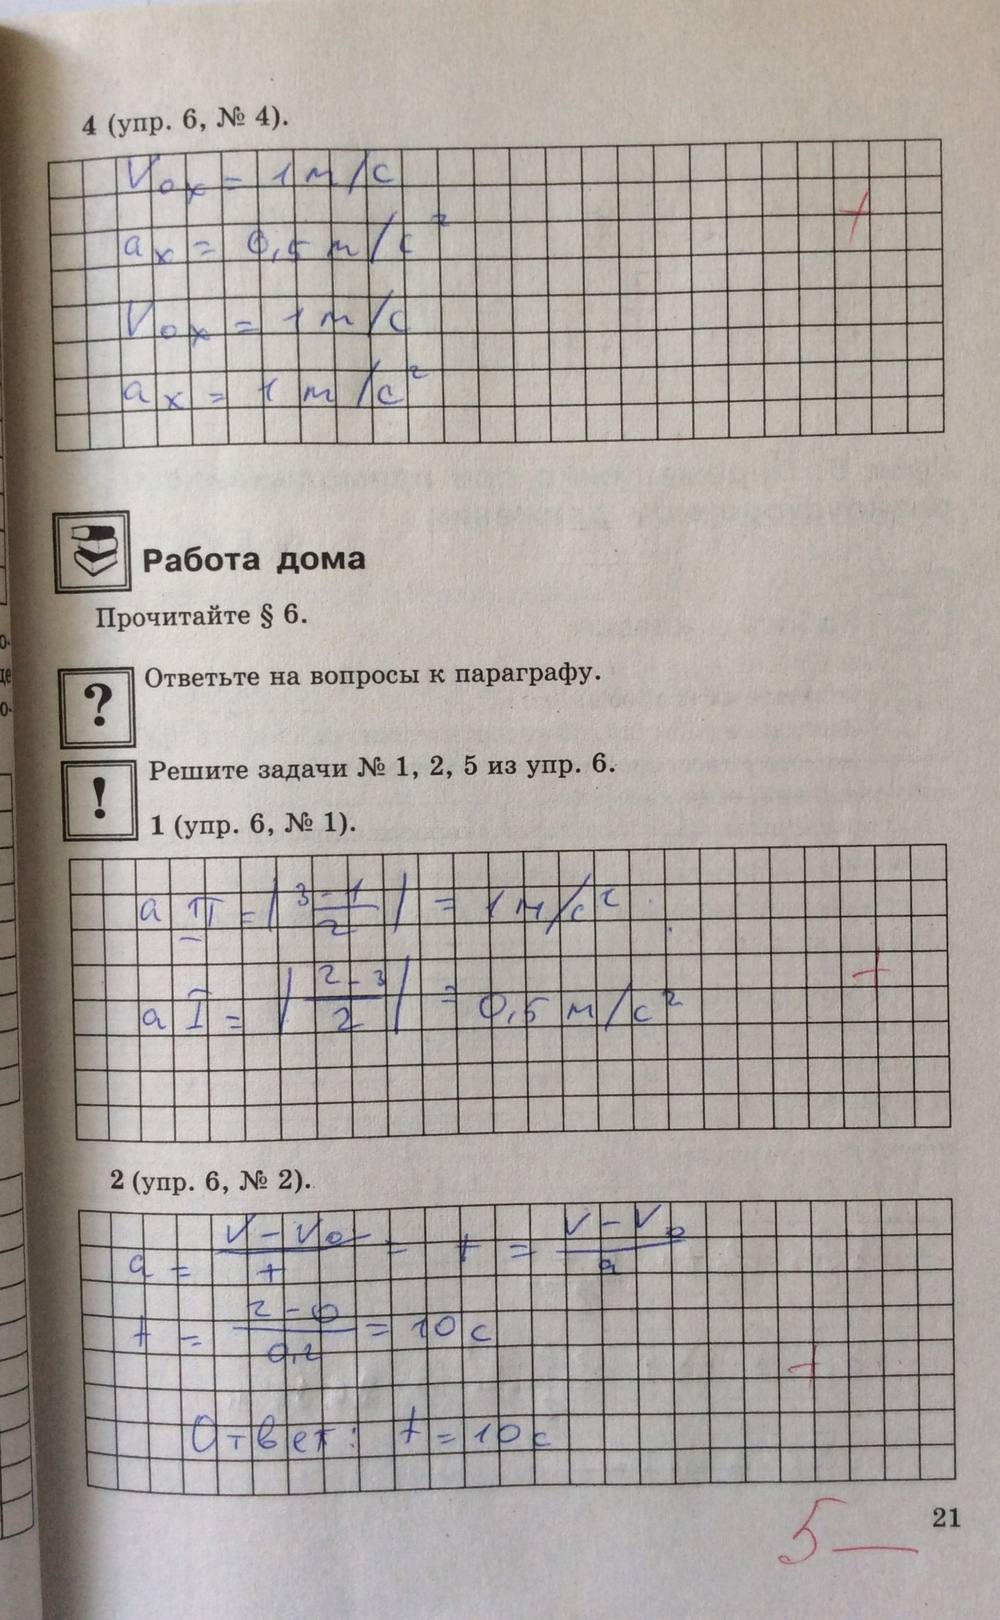 4 (упр. 6, № 4).
V₀ₓ = 1 м/с
aₓ = 0,5 м/с²
V₀ₓ = 1 м/с
aₓ = 1 м/с²
+
Работа дома
Прочитайте § 6.
?
Ответьте на вопросы к параграфу.
!
Решите задачи № 1, 2, 5 из упр. 6.
1 (упр. 6, № 1).
a II = |(3 - 1)/2| = 1 м/с²
a I = |(2 - 3)/2| = 0,5 м/с²
+
2 (упр. 6, № 2).
a = (V - V₀)/t - t = (V - V₀)/a
t = (2 - 0)/0,2 = 10 с
+
Ответ: t = 10 с
21
5—